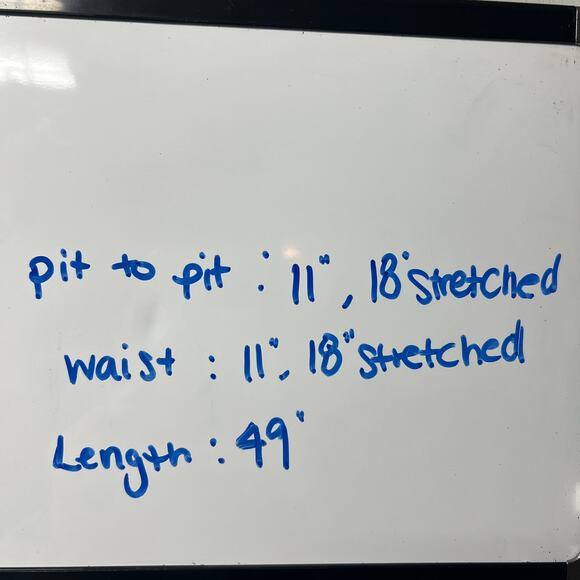 pit to pit : 11", 18" stretched
waist : 11", 18" stretched
Length : 49"